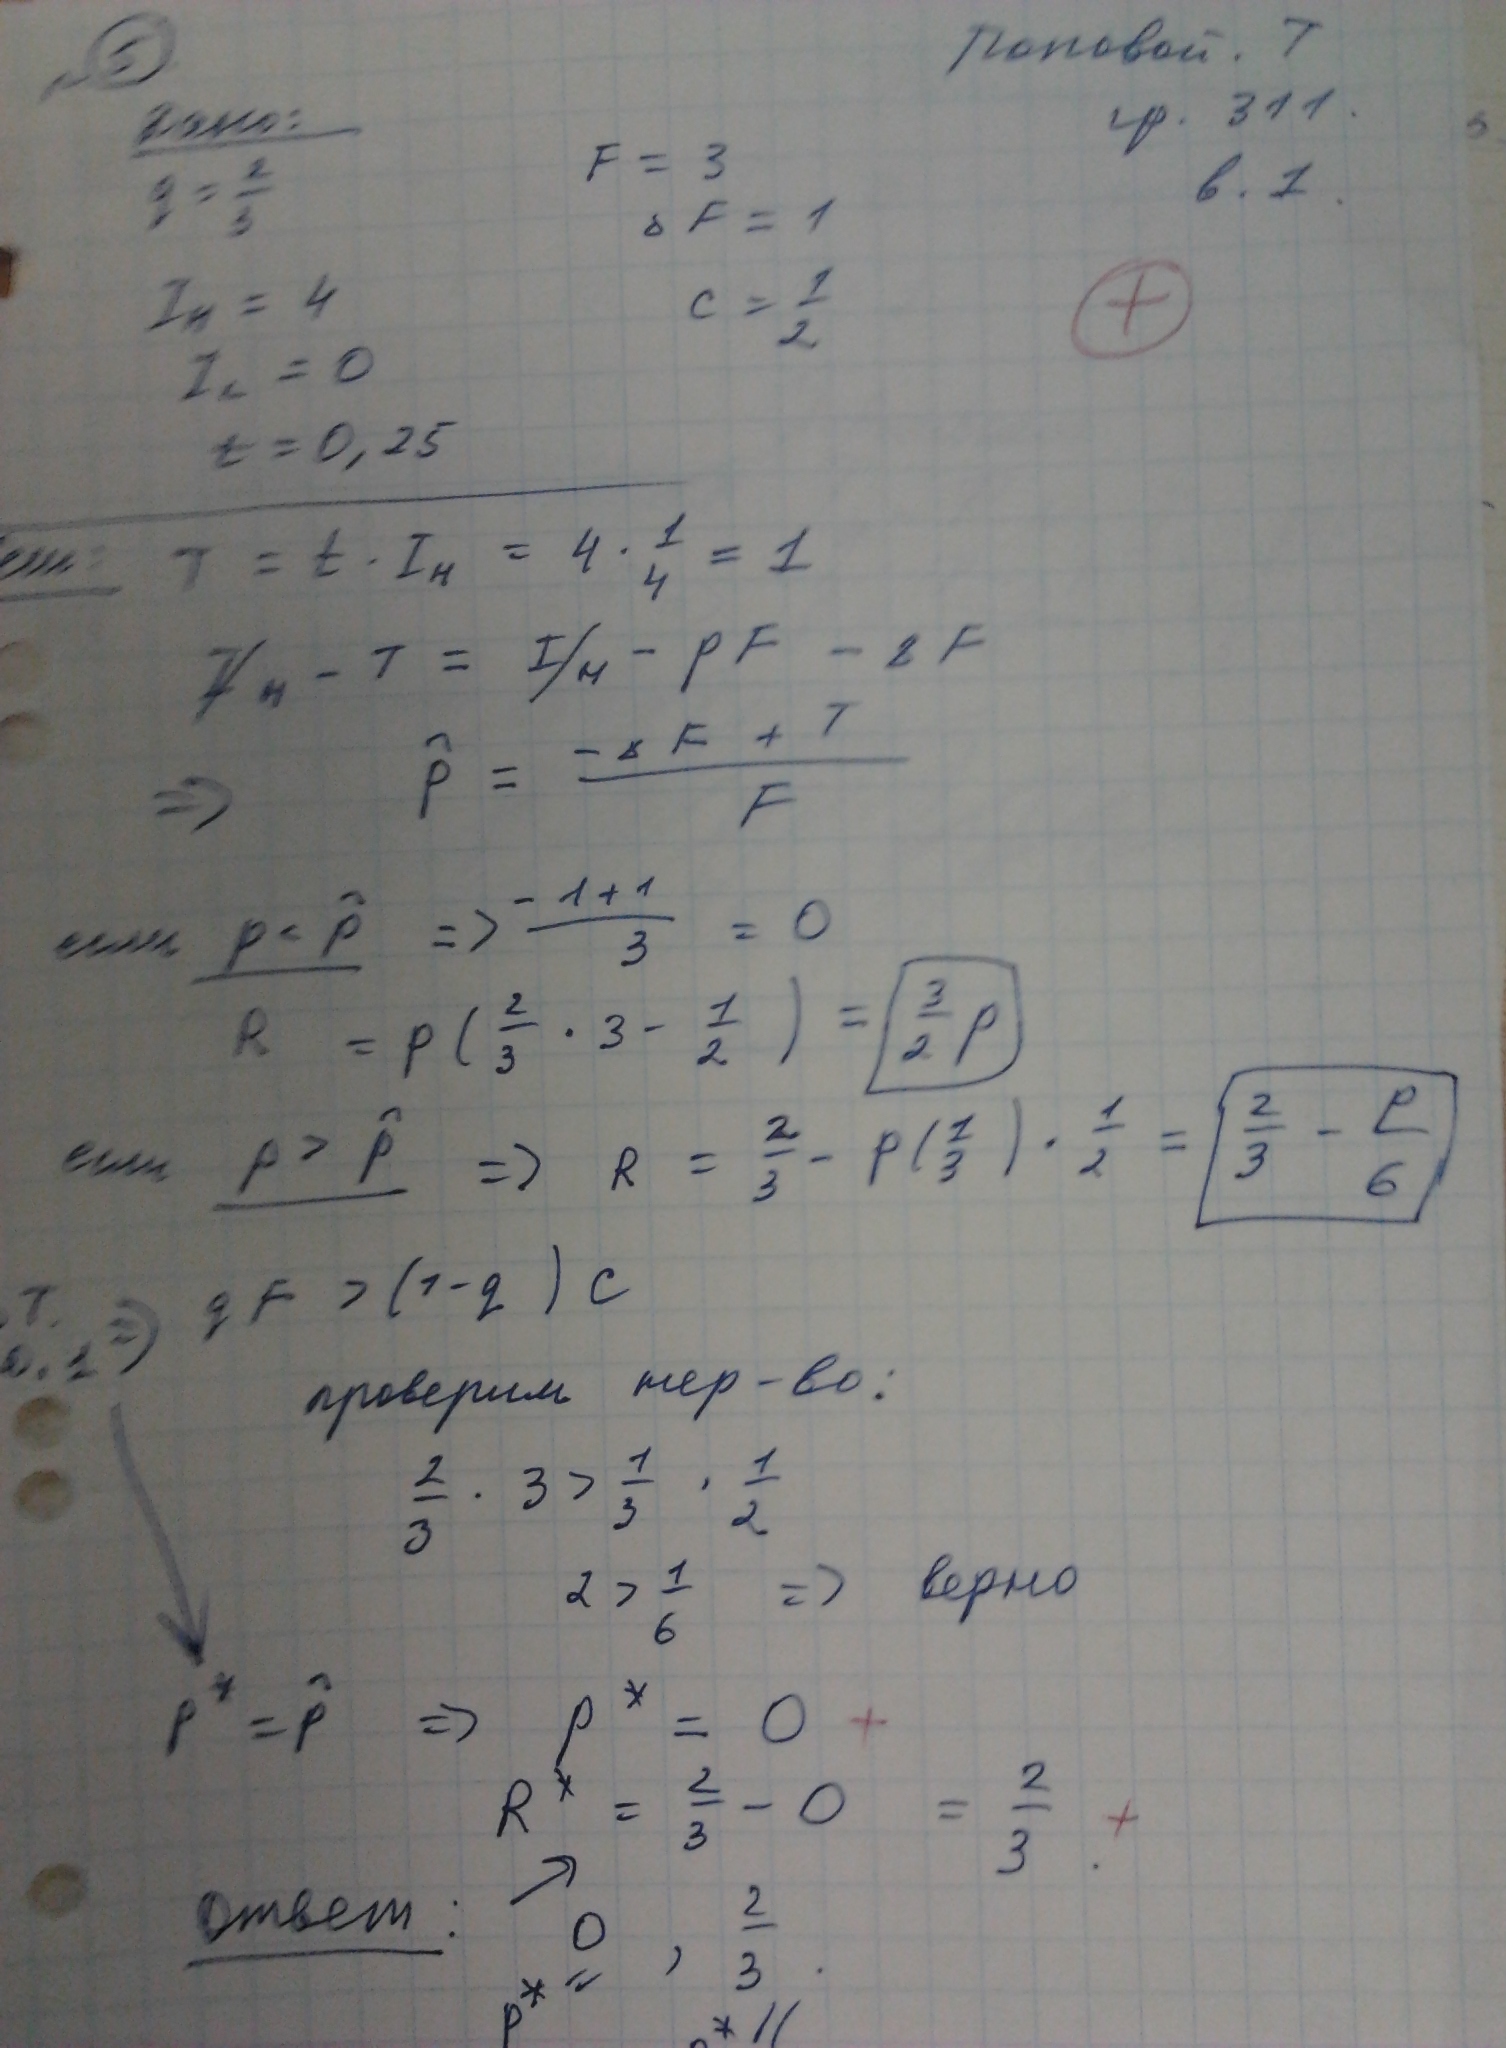 5
Поповой. Т
гр. 311.
в. 1.
Дано:
q = 2/3
F = 3
δF = 1
I_н = 4
c = 1/2
+
I_L = 0
t = 0,25
Реш: T = t · I_н = 4 · 1/4 = 1
I_н - T = I_н - pF - δF
=> p̂ = (-δF + T)/F
если p < p̂ => (-1+1)/3 = 0
R = p(2/3 · 3 - 1/2) = 3/2 p
если p > p̂ => R = 2/3 - p(1/3) · 1/2 = 2/3 - p/6
=> qF > (1-q)c
проверим нер-во:
2/3 · 3 > 1/3 · 1/2
2 > 1/6 => верно
p* = p̂ => p* = 0 +
R* = 2/3 - 0 = 2/3. +
Ответ: 0, 2/3.
p* =